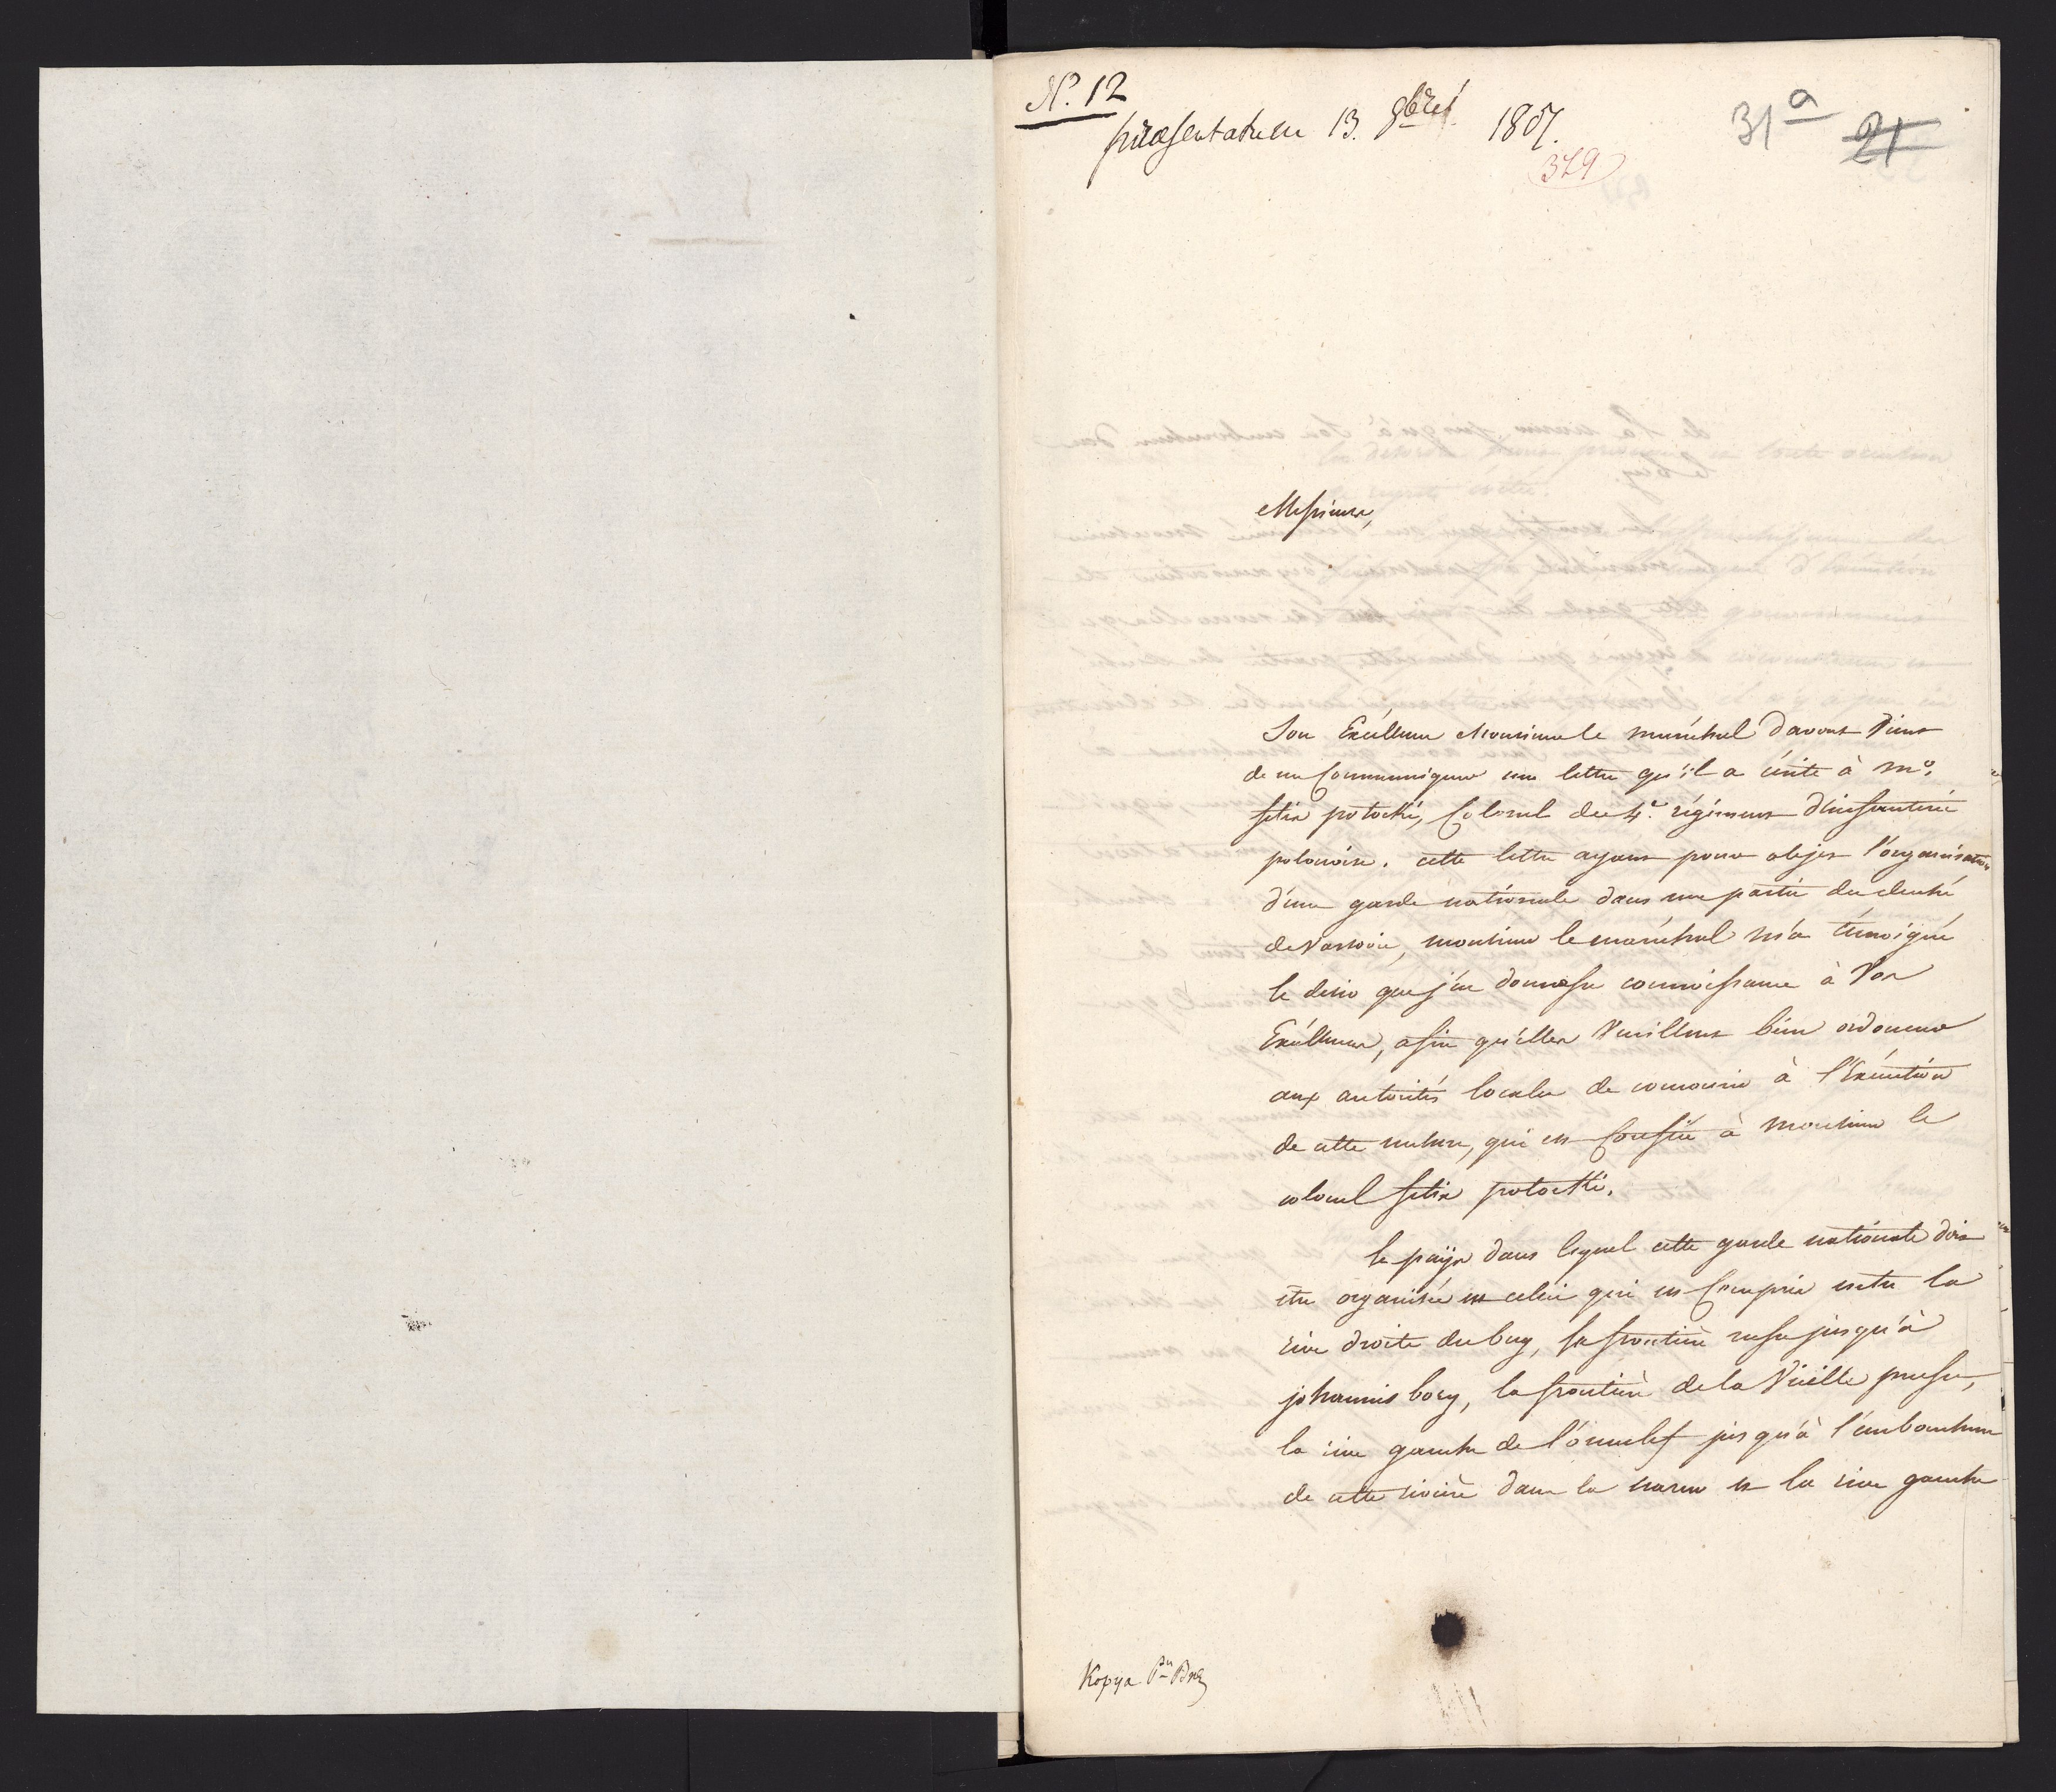 N. 12
præsentatum 13. 8bris 1807.
379
31a 21
Messieurs,
Son Excellence Monsieur le maréchal Davout vient
de me communiquer une lettre qu'il a écrite à Mr.
felix potocki, Colonel du 4.e régiment d'infanterie
polonoise. cette lettre ayant pour objet l'organisation
d'une garde nationale dans une partie du duché
de Varsovie, monsieur le maréchal m'a témoigné
le desir que j'en donnasse connoissance à Vos
Excellences, afin qu'elles veuillent bien ordonner
aux autorités locales de concourir à l'Exécution
de cette mesure, qui est confiée à monsieur le
colonel felix potocki.
le pays dans lequel cette garde nationale doit
être organisée est celui qui est compris entre la
rive droite du bug, la frontière russe jusqu'à
johannisborg, la frontière de la Vieille prusse,
la rive gauche de l'omulef jusqu'à l'embouchure
de cette rivière dans la narew et la rive gauche
Kopya